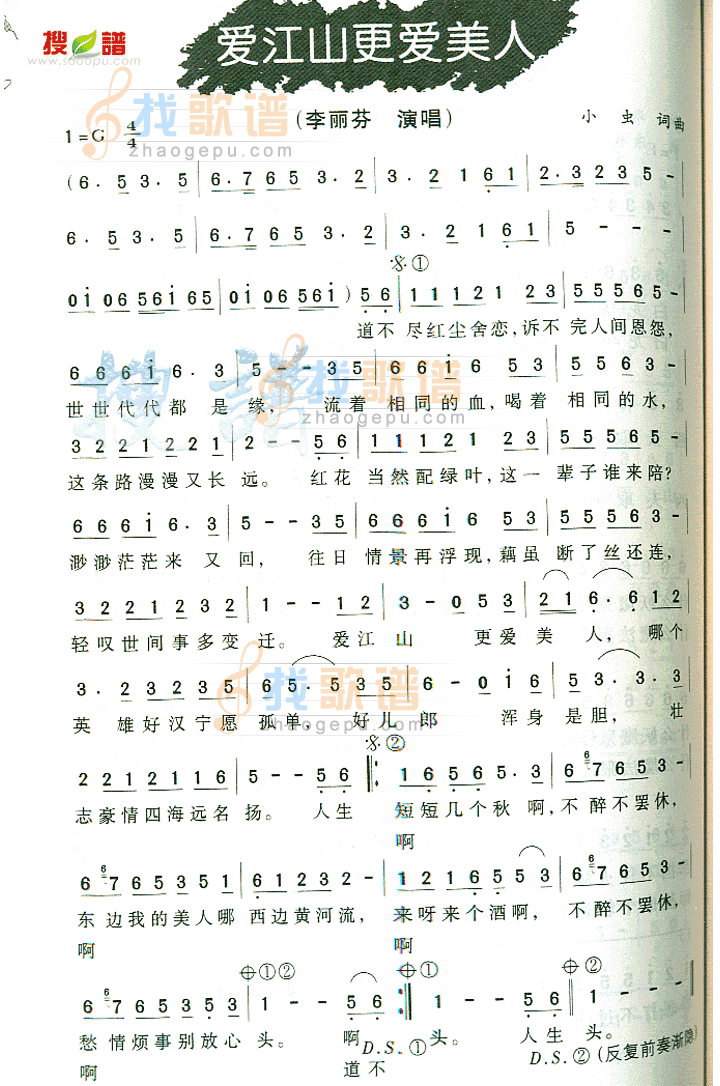 搜谱
www.sooopu.com
爱江山更爱美人
(李丽芬 演唱)
小虫 词曲
1=G 4/4
找歌谱
zhaogepu.com
(6. 5 3. 5 | 6. 7 6 5 3. 2 | 3. 2 1 2 6 1 | 2. 3 2 3 5 -
6. 5 3. 5 | 6. 7 6 5 3. 2 | 3. 2 1 6 1 | 5 - - -
𝄋 ①
0 1 0 6 5 6 1 6 5 | 0 1 0 6 5 6 1 | ) 5 6 | 1 1 1 2 1 2 3 | 5 5 5 6 5 -
道不 尽红尘舍恋,诉不 完人间恩怨,
6 6 6 1 6. 3 | 5 - - 3 5 | 6 6 1 6 5 3 | 5 5 5 6 5 -
世世代代都 是缘, 流着 相同的血,喝着 相同的水,
搜谱
找歌谱
zhaogepu.com
3 2 2 1 2 2 1 | 2 - - 5 6 | 1 1 1 2 1 2 3 | 5 5 5 6 5 -
这条路漫漫又长 远。 红花 当然配绿叶,这一 辈子谁来陪?
6 6 6 1 6. 3 | 5 - - 3 5 | 6 6 6 1 6 5 3 | 5 5 5 6 3 -
渺渺茫茫来 又回, 往日 情景再浮现,藕虽 断了丝还连,
3 2 2 1 2 3 2 | 1 - - 1 2 | 3 - 0 5 3 | 2 1 6. 6 1 2
轻叹世间事多变 迁。 爱江 山 更爱 美 人, 哪个
找歌谱
zhaogepu.com
3. 2 3 2 3 5 | 6 5. 5 3 5 | 6 - 0 1 6 | 5 3. 3. 3
英 雄好汉宁愿 孤单, 好儿 郎 浑身 是胆, 壮
𝄋 ②
2 2 1 2 1 1 6 | 5 - - 5 6 ‖: 1 6 5 6 5. 3 | 6 6 7 6 5 3 -
志豪情四海远名 扬。 人生 短短几个秋 啊,不醉不罢休,
啊
6 6 7 6 5 3 5 1 | 6 1 2 3 2 - | 1 2 1 6 5 5 3 | 6 6 7 6 5 3 -
东 边我的美人哪 西边黄河流, 来呀来个酒啊, 不醉不罢休,
啊 啊
𝄌①② 𝄌① 𝄌②
6 6 7 6 5 3 5 3 | 1 - - 5 6 :‖ 1 - - 5 6 | 1 - - -
愁 情烦事别放心 头。 啊 头。 人生 头。
啊 道不
D.S.① D.S.②(反复前奏渐隐)